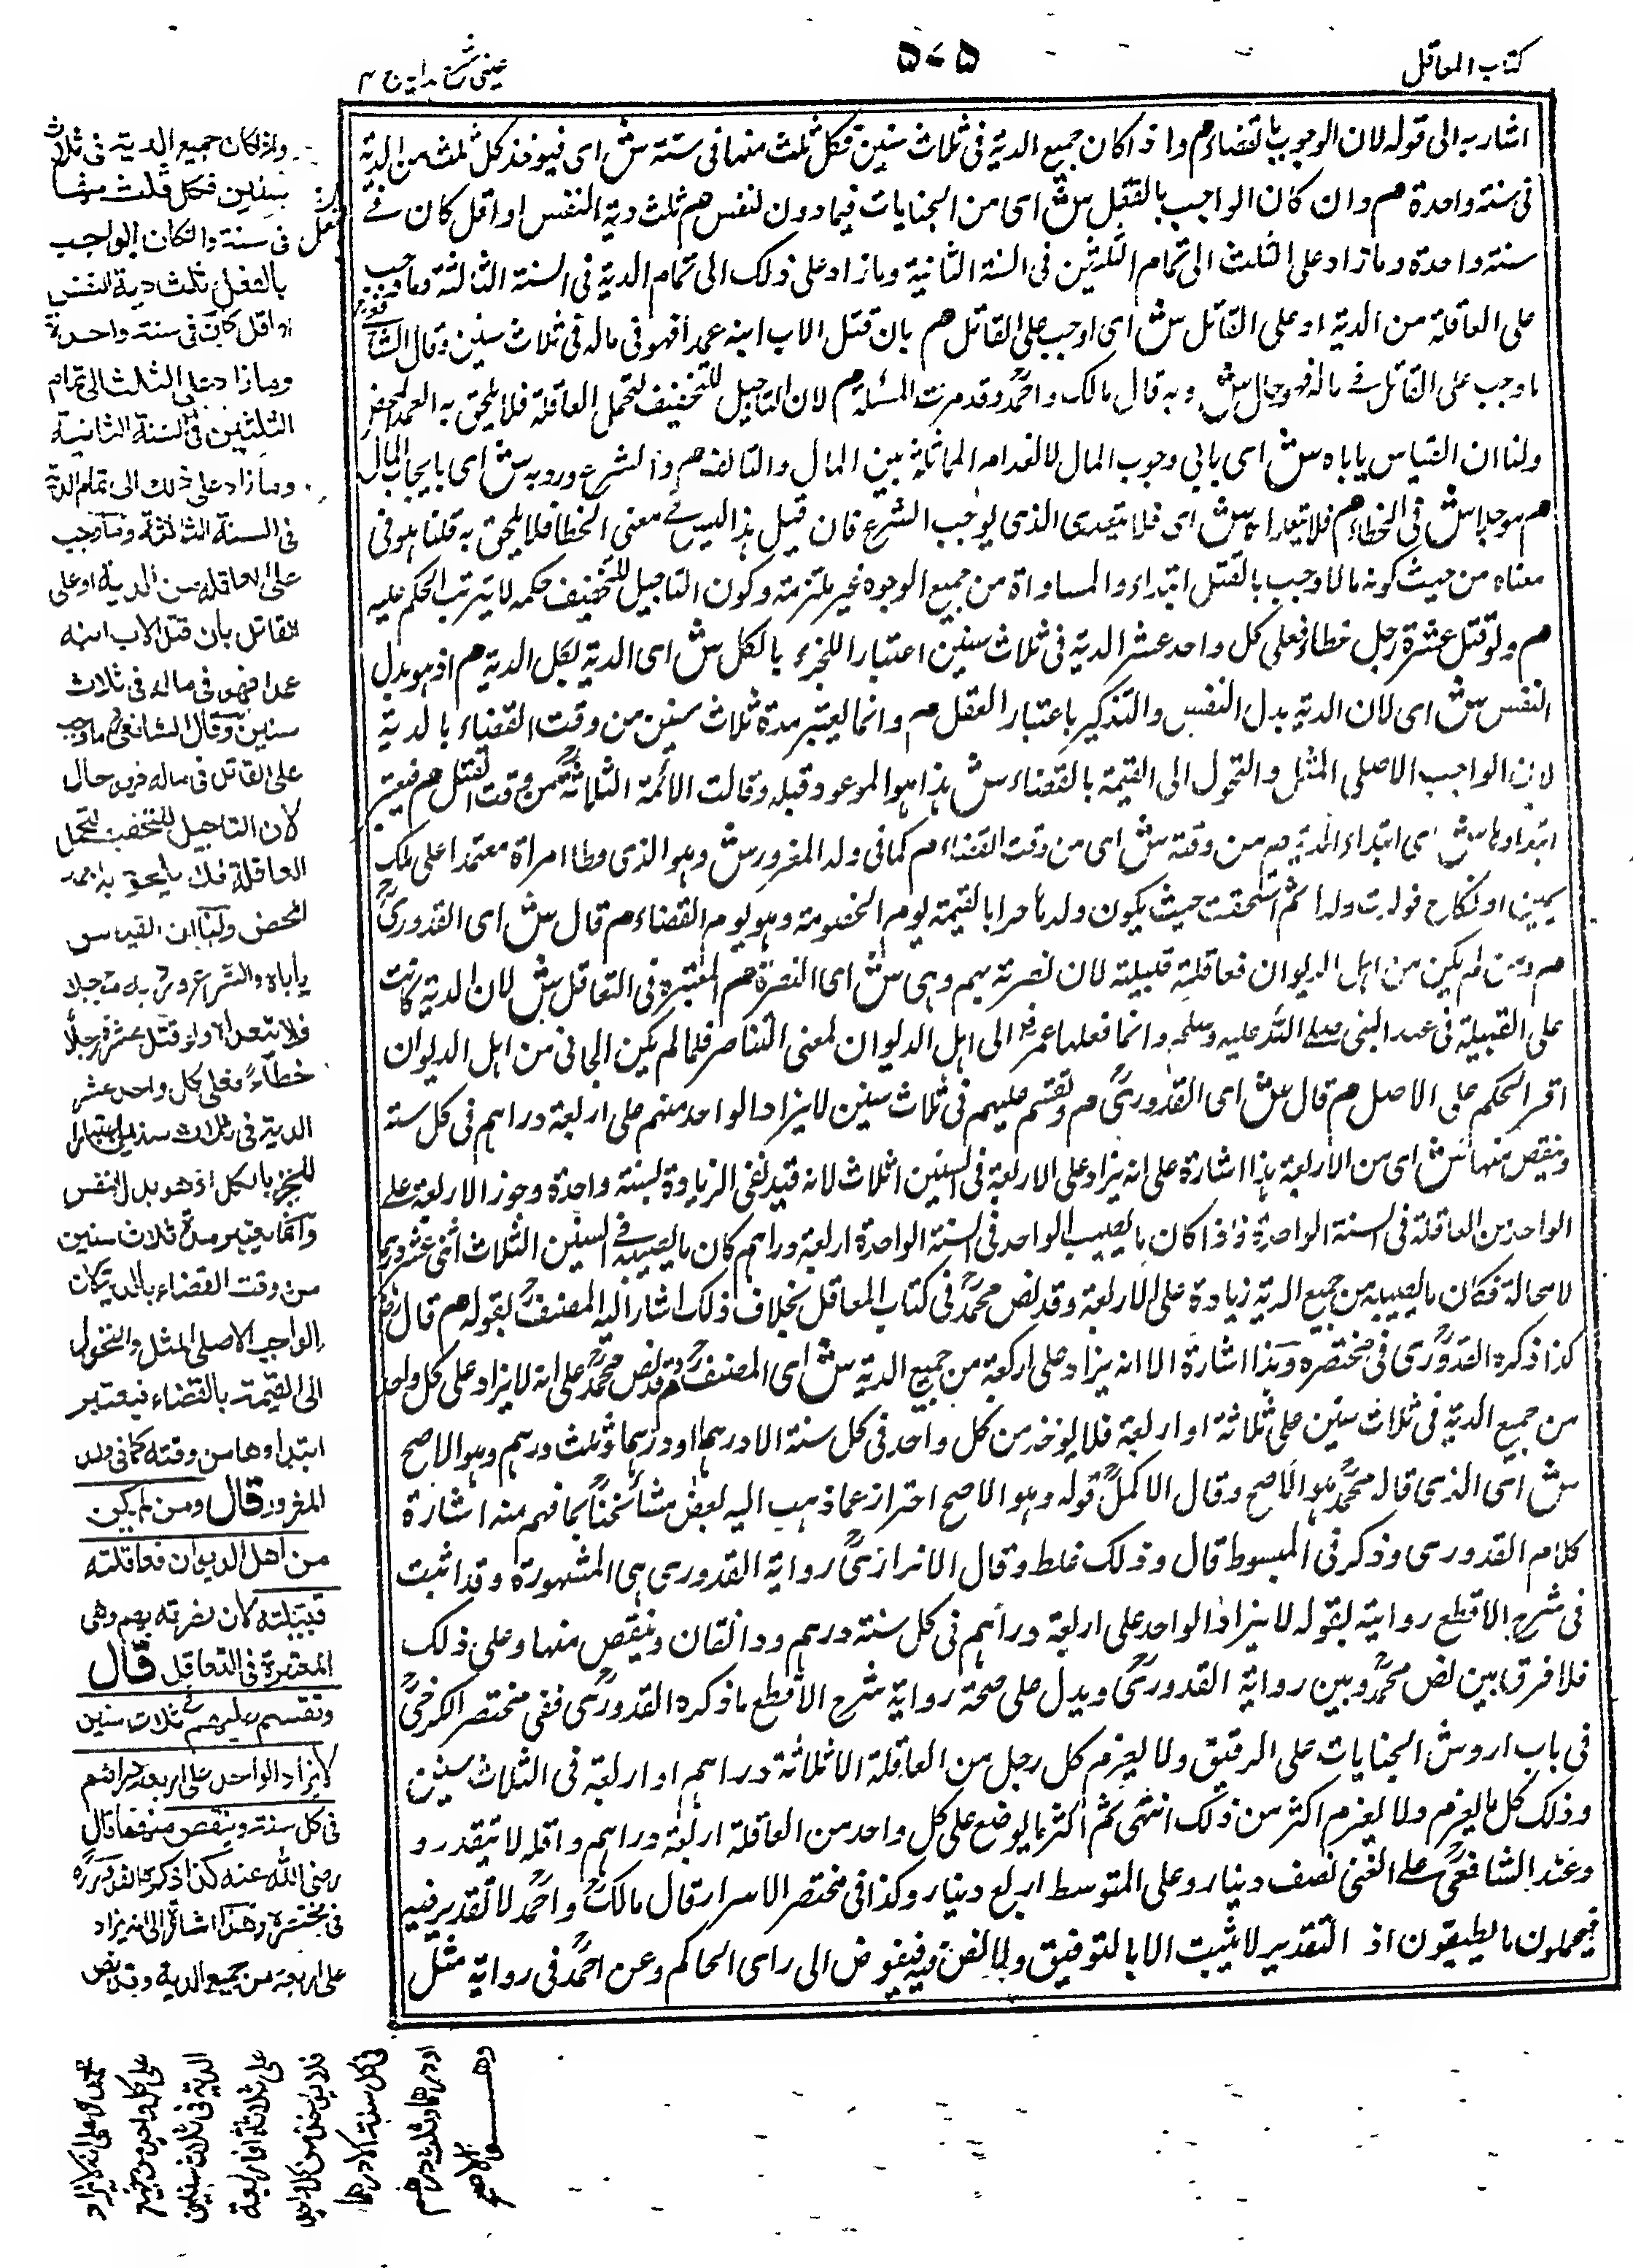 كتاب المعاقل
۵۰۵
عینی شرح ہدایہ ج ۴
اشار به الى قوله لان الوجوب بالقضاء م واذا كان جميع الدية فى ثلاث سنين فكل ثلث منها فى سنة ش اى فيوخذ كل ثلث من الدية
فى سنة واحدة م وان كان الواجب بالفعل ش اى من الجنايات فيما دون النفس م ثلث دية النفس او اقل كان فے
سنة واحدة وما زاد على الثلث الى تمام الثلثين فى السنة الثانية وما زاد على ذلك الى تمام الدية فى السنة الثالثة وما وجب
على العاقلة من الدية او على القاتل ش اى او وجب على القاتل م بان قتل الاب ابنه عمدا فهو فى ماله فى ثلاث سنين وقال الشافعىؒ
ما وجب على القاتل فے ماله فهو حال ش وبه قال مالك واحمدؒ وقد مرت المسئلة م لان التاجيل للتخفيف لتحمل العاقلة فلا يلحق به العمد المحض
ولنا ان القياس ياباه ش اى يابى وجوب المال لانعدام المماثلة بين المال والتالف م والشرع ورد به ش اى بايجاب المال
م موجلا ش فى الخطاء م فلا يتعداه ش اى فلا يتعدى الذى يوجب الشرع فان قيل هذا ليس فے معنى الخطا فلا يلحق به قلنا هو فى
معناه من حيث كونه مالا وجب بالقتل ابتداء والمساواة من جميع الوجوه غير ملتزمة وكون التاجيل للتخفيف حكمه لا يترتب الحكم عليه
م ولو قتل عشرة رجل خطاء فعلى كل واحد عشر الدية فى ثلاث سنين اعتبارا للجزء بالكل ش اى الدية لكل الدية م اذ هو بدل
النفس ش اى لان الدية بدل النفس والتذكير باعتبار العقل م وانما يعتبر مدة ثلاث سنين من وقت القضاء بالدية
لان الواجب الاصلى المثل والتحول الى القيمة بالقضاء ش هذا هو الموعود قبله وقالت الأئمة الثلاثةؒ من وقت القتل م فيعتبر
ابتداوها ش اى ابتداء المدة م من وقته ش اى من وقت القضاء م كما فى ولد المغرور ش وهو الذى وطا امراة معتمدا على ملك
يمين او نكاح فولدت ولدا ثم استحقت حيث يكون ولدها حرا بالقيمة يوم الخصومة وهو يوم القضاء م قال ش اى القدورىؒ
م ومن لم يكن من اهل الديوان فعاقلته قبيلته لان نصرته بهم وهى ش اى النصرة م المعتبرة فى التعاقل ش لان الدية كانت
على القبيلة فى عهد النبى صلے الله عليه وسلم وانما نعلها عمرؓ الى اهل الديوان لمعنى التناصر فلما لم يكن الجانى من اهل الديوان
اقر الحكم على الاصل م قال ش اى القدورىؒ م وتقسم عليهم فى ثلاث سنين لا يزاد الواحد منهم على اربعة دراهم فى كل سنة
وينقص منها ش اى من الاربعة هذا اشارة على انه يزاد على الاربعة فى السنين الثلاث لانه قيد نفى الزيادة لسنة واحدة وجوز الاربعة على
الواحد من العاقلة فى السنة الواحدة فاذا كان ما يصيب الواحد فى السنة الواحدة اربعة دراهم كان ما يصيبه فے السنين الثلاث اثنى عشر درهما
لا محالة فكان ما يصيبه من جميع الدية زيادة على الاربعة وقد نص محمدؒ فى كتاب المعاقل بخلاف ذلك اشار اليه المصنفؒ بقوله م قال رضؓ
كذا ذكره القدورىؒ فى مختصره وهذا اشارة الا انه يزاد على اربعة من جميع الدية ش اى المصنفؒ م وقد نص محمدؒ على انه لا يزاد على كل واحد
من جميع الدية فى ثلاث سنين على ثلاثة او اربعة فلا يوخذ من كل واحد فى كل سنة الا درهما او درهما وثلث درهم وهو الاصح
ش اى الذى قال محمدؒ هو الاصح وقال الاكملؒ قوله وهو الاصح احتراز عما ذهب اليه بعض مشائخنا بما فهم منه اشارة
كلام القدورى وذكر فى المبسوط قال وذلك غلط وقال الاترازىؒ رواية القدورى هى المشهورة وقد اثبت
فى شرح الاقطع رواية بقوله لا يزاد الواحد على اربعة دراهم فى كل سنة درهم ودانقان وينقص منها وعلى ذلك
فلا فرق بين نص محمدؒ وبين رواية القدورىؒ ويدل على صحة رواية شرح الاقطع ما ذكره القدورىؒ ففى مختصر الكرخىؒ
فى باب اروش الجنايات على الرقيق ولا يغرم كل رجل من العاقلة الا ثلاثة دراهم او اربعة فى الثلاث سنين
وذلك كل ما يغرم ولا يغرم اكثر من ذلك انتهى ثم اكثر ما يوضع على كل واحد من العاقلة اربعة دراهم واقله لا يتقدر و
وعند الشافعىؒ علے الغنى نصف دينار وعلى المتوسط اربع دينار وكذا فى مختصر الاسرار قال مالكؒ واحمدؒ لا تقدير فيه
فيحملون ما يطيقون اذ التقدير لا يثبت الا بالتوفيق ولا نص فيه فيفوض الى راى الحاكم وعن احمدؒ فى رواية مثل
واذا كان جميع الدية فى ثلاث
سنين فكل ثلث منها
فى سنة وان كان الواجب
بالفعل ثلث دية النفس
او اقل كان فى سنة واحدة
وما زاد على الثلث الى تمام
الثلثين فى السنة الثانية
وما زاد على ذلك الى تمام الدية
فى السنة الثالثة وما وجب
على العاقلة من الدية او على
القاتل بان قتل الاب ابنه
عمدا فهو فى ماله فى ثلاث
سنين وقال الشافعىؒ ما وجب
على القاتل فى ماله فهو حال
لان التاجيل للتخفيف لتحمل
العاقلة فلا يلحق به العمد
المحض ولنا ان القياس
ياباه والشرع ورد به موجلا
فلا يتعداه ولو قتل عشرة رجلا
خطاء فعلى كل واحد عشر
الدية فى ثلاث سنين اعتبارا
للجزء بالكل اذ هو بدل النفس
وانما يعتبر مدة ثلاث سنين
من وقت القضاء بالدية لان
الواجب الاصلى المثل والتحول
الى القيمة بالقضاء فيعتبر
ابتداوها من وقته كما فى ولد
المغرور قال ومن لم يكن
من اهل الديوان فعاقلته
قبيلته لان نصرته بهم وهى
المعتبرة فى التعاقل قال
وتقسم عليهم فے ثلاث سنين
لا يزاد الواحد على اربعة دراهم
فى كل سنة وينقص منها قال
رضى الله عنه كذا ذكره القدورىؒ
فى مختصره وهذا اشارة الى انه يزاد
على اربعة من جميع الدية وقد نص
محمدؒ على انه لا يزاد
على كل واحد من جميع
الدية فى ثلاث سنين
على ثلاثة او اربعة
فلا يوخذ من كل واحد
فى كل سنة الا درهما
او درهما وثلث درهم
وهو الاصح